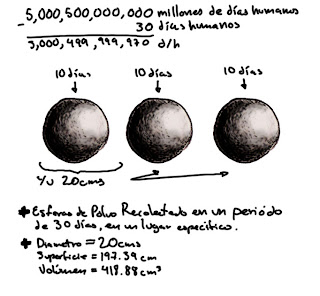 5,000,500,000,000 millones de días humanos
- 30 días humanos
3,000,499,999,970 d/h
10 días
10 días
10 días
c/u 20cms
+ Esferas de Polvo Recolectado en un periódo
de 30 días, en un lugar especifico.
+ Diametro = 20cms
Superficie = 197.39 cm
Volúmen = 418.88 cm³